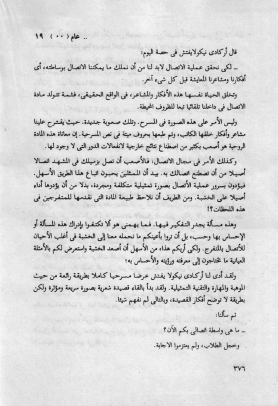 .. عام (٠٠) ١٩
قال أركادى نيكولايفتش فى حصة اليوم:
ـ لكى نحقق عملية الاتصال لابد لنا من أن نملك ما يمكننا الاتصال بوساطته، أى
أفكارنا ومشاعرنا المعايشة قبل كل شىء آخر.
وتخلق الحياة نفسها هذه الأفكار والمشاعر، فى الواقع الحقيقى، فثمة تتولد مادة
الاتصال فى داخلنا تلقائيا تبعا للظروف المحيطة.
وليس الأمر على هذه الصورة فى المسرح. وتلك صعوبة جديدة. حيث يقترح علينا
مشاعر وأفكار خلقها الكاتب، وتم طبعها بحروف ميتة فى نص المسرحية. إن معاناة هذه المادة
الروحية هو أصعب بكثير من اصطناع نتائج خارجية لانفعالات الدور التى لا وجود لها.
وكذلك الأمر فى مجال الاتصال، فالأصعب أن تصل بزميلك فى المشهد اتصالا
أصيلا من أن تصطنع اتصالك به. بيد أن الممثلين يحبون اتباع هذا الطريق الأسهل.
فيؤدون بسرور عملية الاتصال بصورة تمثيلية متكلفة ومجردة، بدلا من أن يؤدوها أداء
أصيلا على الخشبة. ومن الطريف أن نلاحظ طبيعة المادة التى نقدمها للمتفرجين فى
هذه اللحظات؟!
وهذه مسألة يجدر التفكير فيها. فما يهمنى هو ألا تكتفوا بإدراك هذه المسألة أو
الإحساس بها وحسب، بل أن تروا بأعينكم ما نحمله معنا إلى الخشبة فى أغلب الأحيان
للاتصال بالمتفرج. ولكى أريكم هذا، من الأسهل أن أصعد الخشبة واستعرض لكم بالأمثلة
العيانية ما تحتاجون إلى معرفته ورؤيته والأحساس به؛
ولقد أدى لنا أركادى نيكولا يفتش عرضا مسرحيا كاملا بطريقة رائعة من حيث
الموهبة والمهارة والتقنية التمثيلية. ولقد بدأ بالقاء قصيدة شعرية بصورة سريعة ومؤثرة ولكن
بطريقة لا توضح أفكار القصيدة، وبالتالى لم نفهم شيئا.
ثم سألنا:
ـ ما هى واسطة اتصالى بكم الآن؟
وخجل الطلاب، ولم يعتزموا الاجابة.
٣٧٦